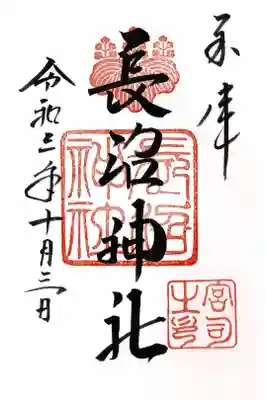 兵庫
長沼神社
令和三年十月三日
長沼神社
宮司之印